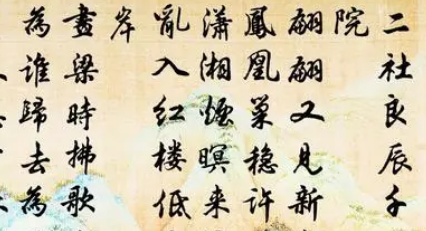 二社良辰千
院
翩翩又見新
鳳凰巢穩許
瀟湘煙暝來
亂入红楼低
岸
畫梁時拂歌
為誰歸去為